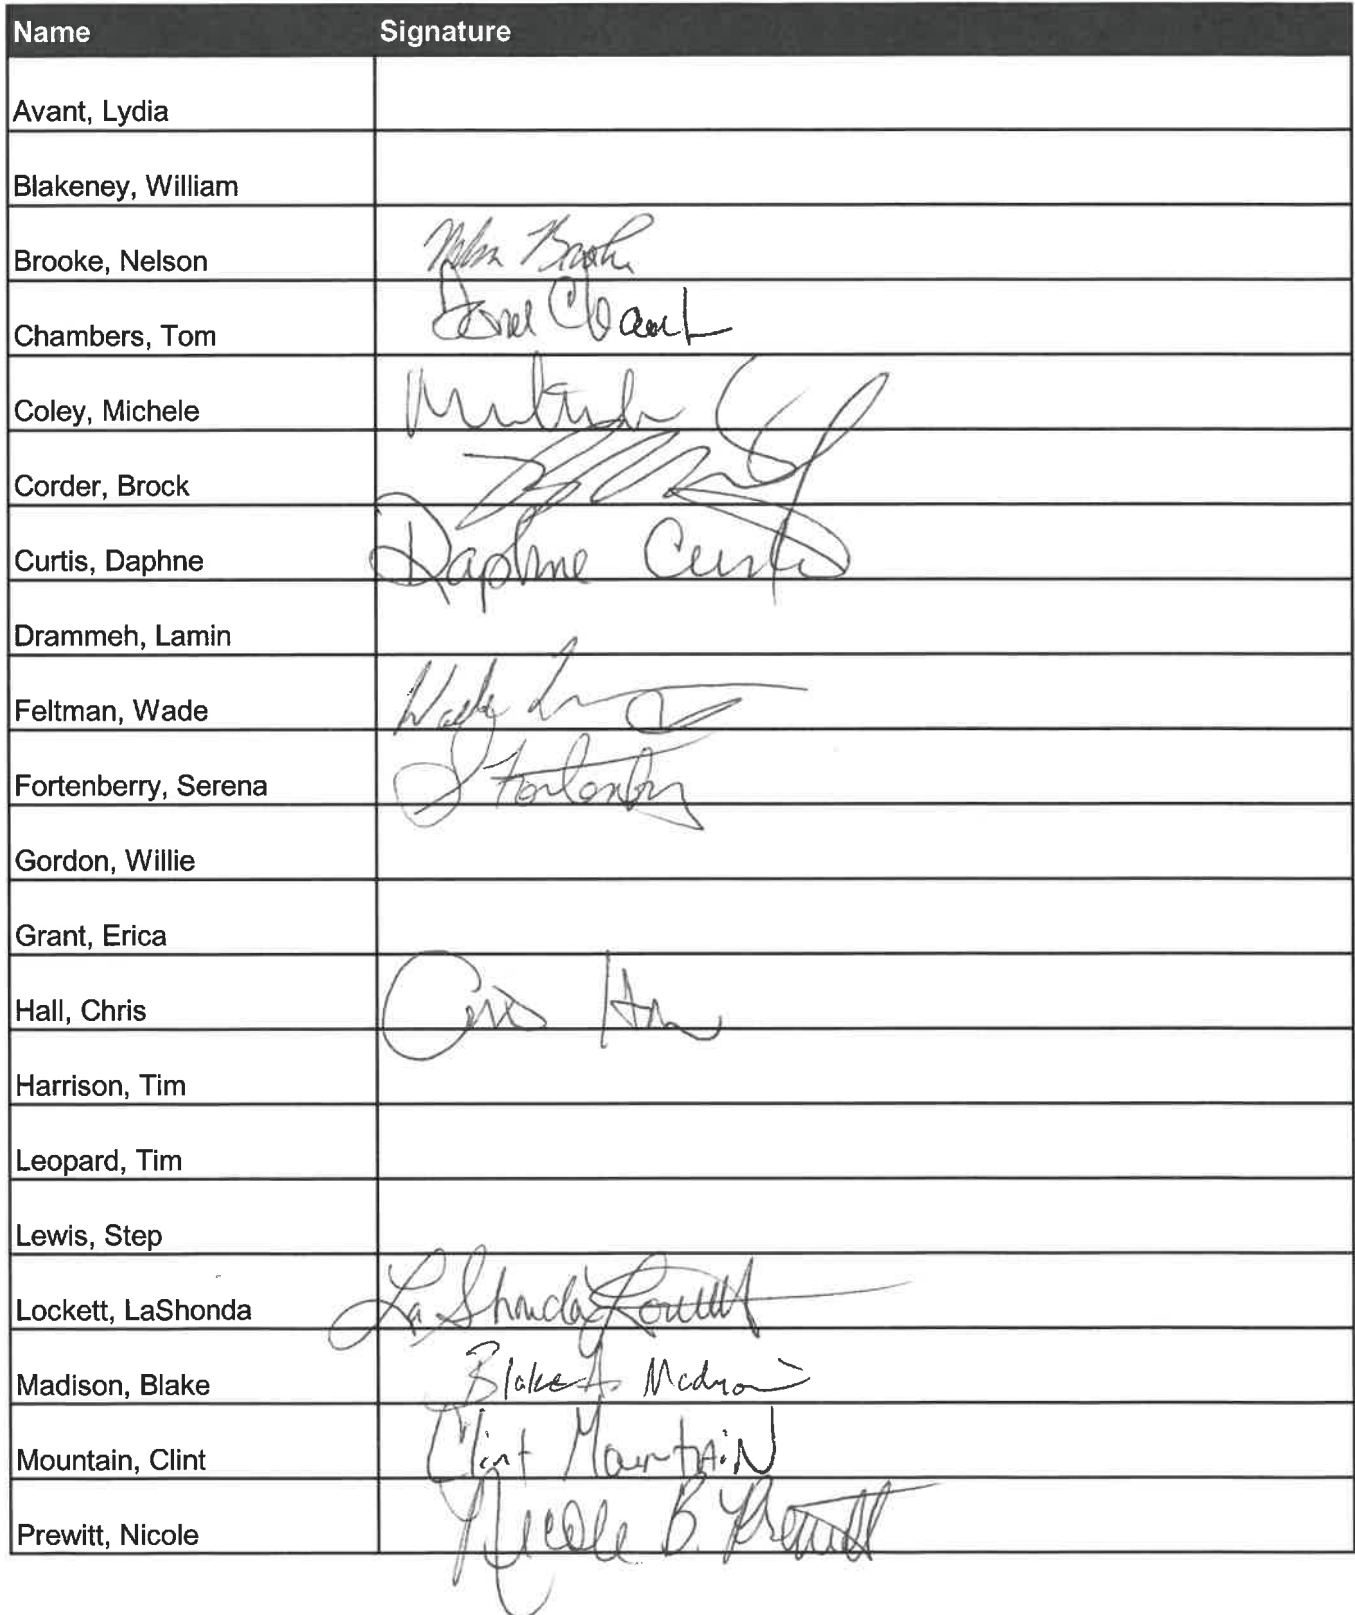 Name Signature
Avant, Lydia
Blakeney, William
Brooke, Nelson Nelson Brooke
Chambers, Tom
Coley, Michele
Corder, Brock
Curtis, Daphne Daphne Curtis
Drammeh, Lamin
Feltman, Wade Wade
Fortenberry, Serena S Fortenberry
Gordon, Willie
Grant, Erica
Hall, Chris Chris Hall
Harrison, Tim
Leopard, Tim
Lewis, Step
Lockett, LaShonda LaShonda Lockett
Madison, Blake Blake A. Madison
Mountain, Clint Clint Mountain
Prewitt, Nicole Nicole B. Prewitt